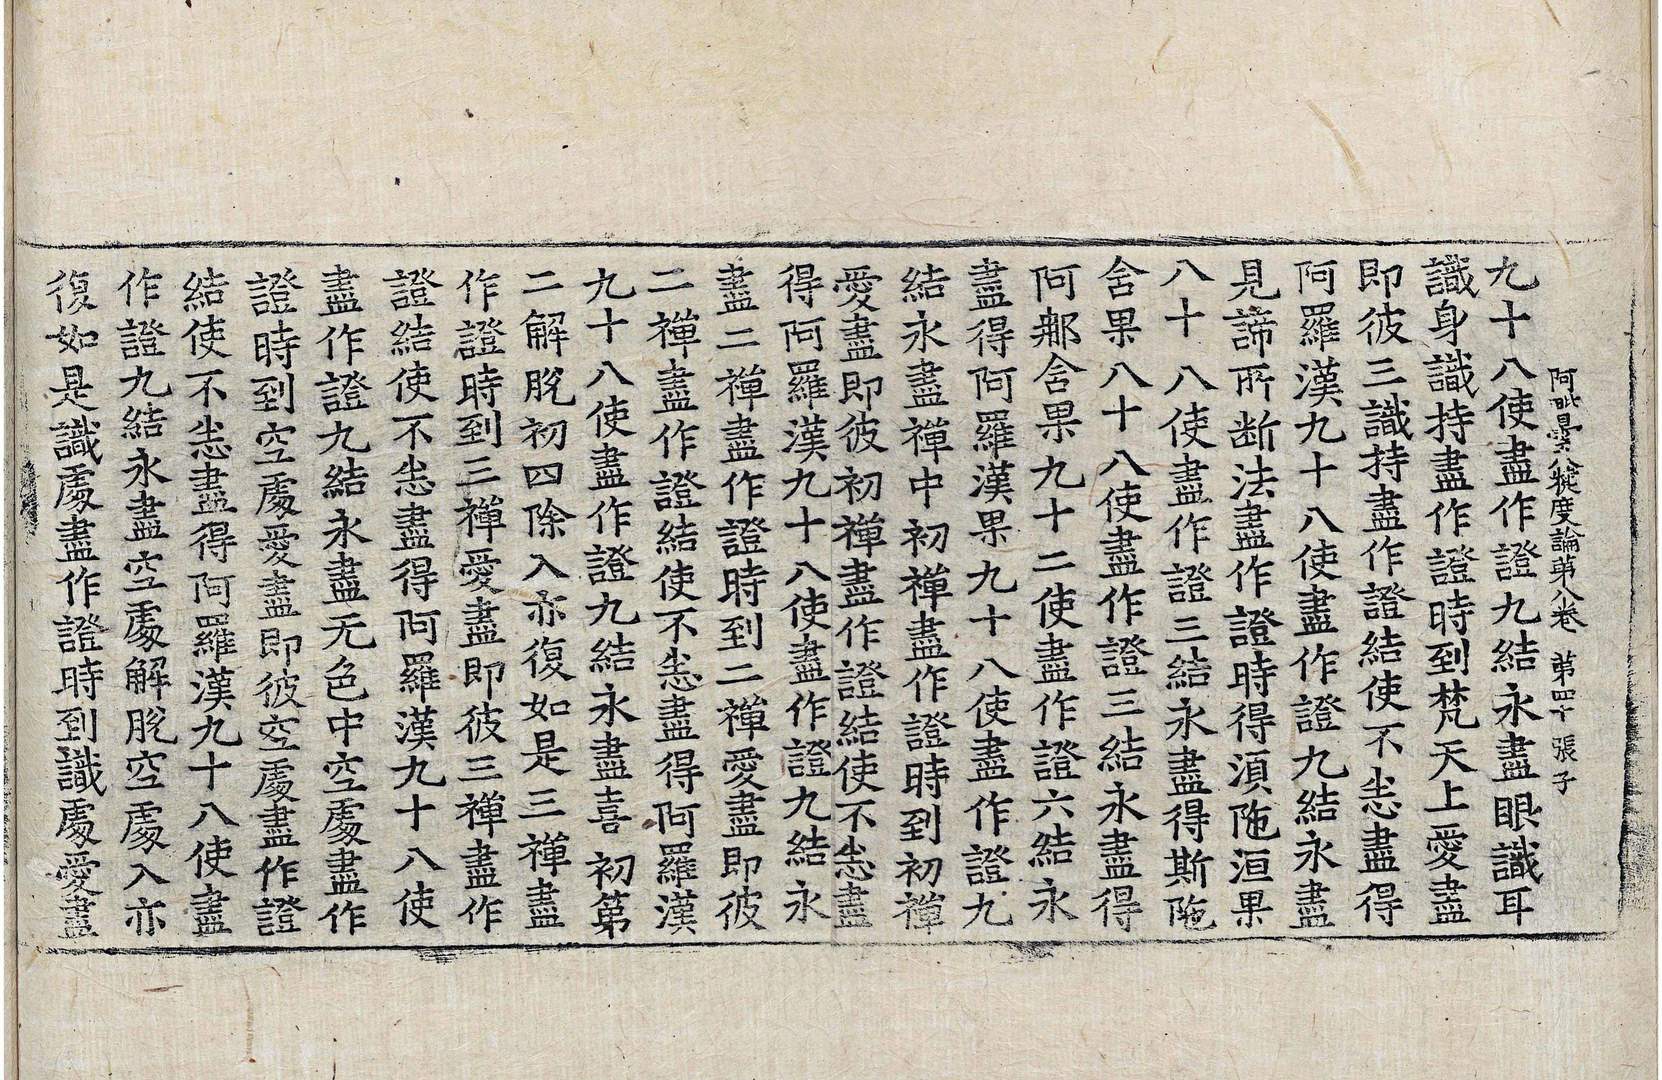 阿毗曇八犍度論第八卷　第四十　張子
九十八使盡作證九結永盡眼識耳
識身識持盡作證時到梵天上愛盡
即彼三識持盡作證結使不恙盡得
阿羅漢九十八使盡作證九結永盡
見諦所断法盡作證時得湏陁洹果
八十八使盡作證三結永盡得斯陁
舍果八十八使盡作證三結永盡得
阿郍舍果九十二使盡作證六結永
盡得阿羅漢果九十八使盡作證九
結永盡禪中初禪盡作證時到初禪
愛盡即彼初禪盡作證結使不恙盡
得阿羅漢九十八使盡作證九結永
盡二禪盡作證時到二禪愛盡即彼
二禪盡作證結使不恙盡得阿羅漢
九十八使盡作證九結永盡喜初第
二解脫初四除入亦復如是三禪盡
作證時到三禪愛盡即彼三禪盡作
證結使不恙盡得阿羅漢九十八使
盡作證九結永盡无色中空處盡作
證時到空處愛盡即彼空處盡作證
結使不恙盡得阿羅漢九十八使盡
作證九結永盡空處解脫空處入亦
復如是識處盡作證時到識處愛盡